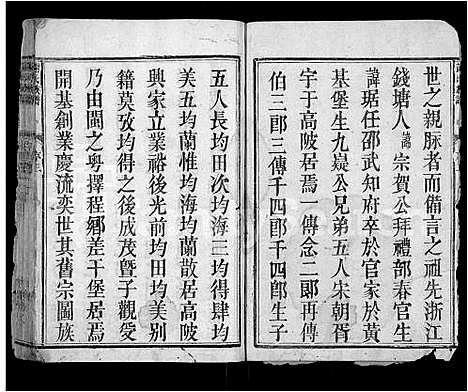 世之親脉者而備言之祖先浙江
錢塘人諱宗賀公拜禮部春官生
諱琚任邵武知府卒於官家於黃
基堡生九嶷公兄弟五人宋朝胥
宇于高陂居焉一傳念二郎再傳
伯三郎三傳千四郎千四郎生子
五人長均田次均海三均得肆均
美五均蘭惟均海均蘭散居高陂
興家立業裕後光前均田均美别
籍莫攷均得之後成茂暨子觀受
乃由閩之粤擇程鄉差干堡居焉
開基創業慶流奕世其舊宗圖族